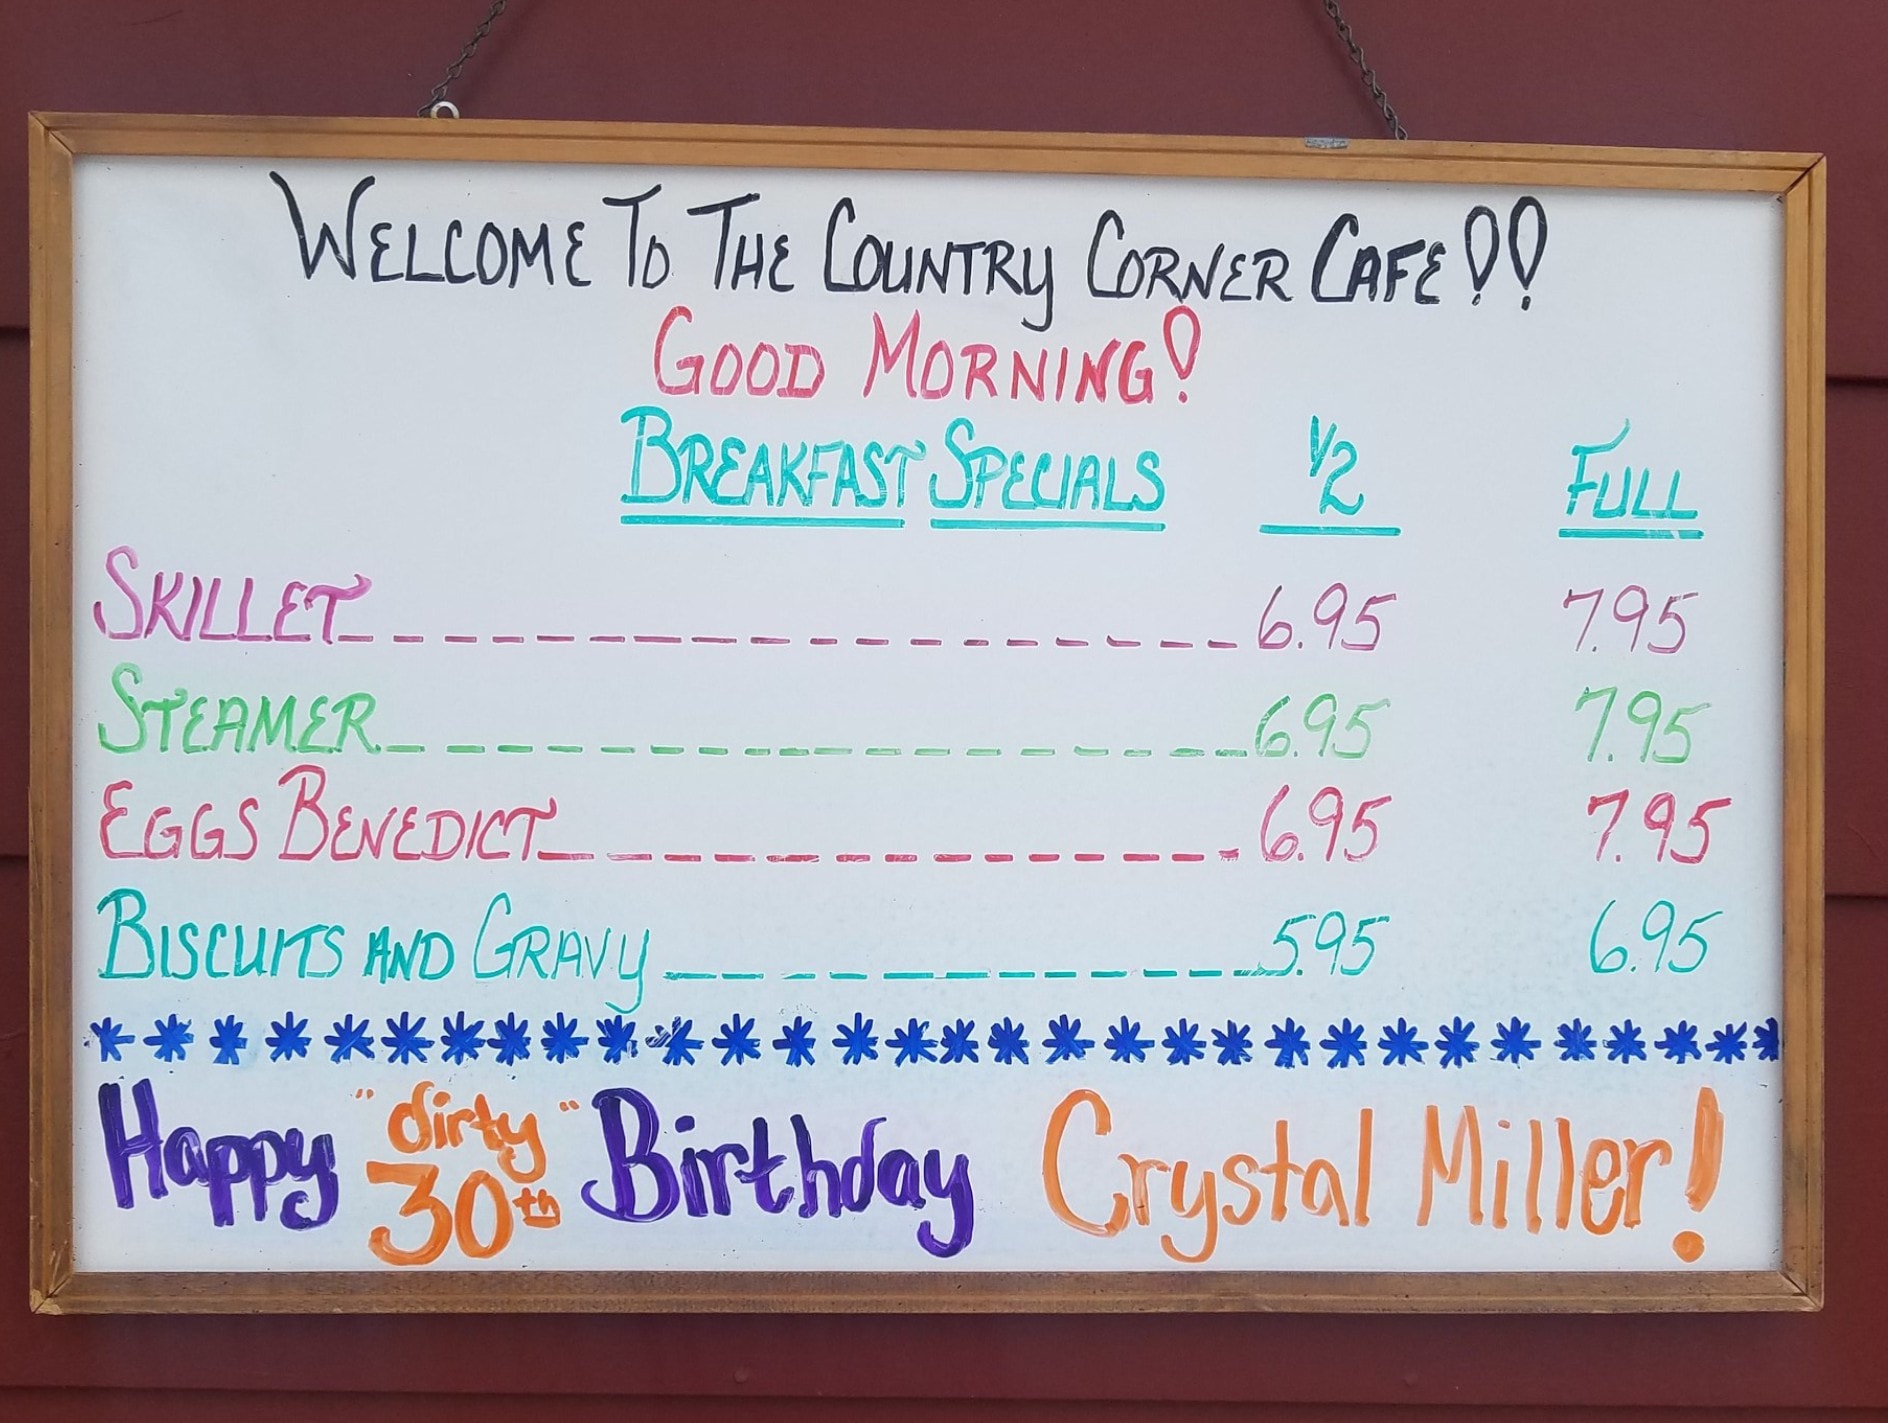 WELCOME TO THE COUNTRY CORNER CAFE!!
GOOD MORNING!
BREAKFAST SPECIALS 1/2 FULL
SKILLET 6.95 7.95
STEAMER 6.95 7.95
EGGS BENEDICT 6.95 7.95
BISCUITS AND GRAVY 5.95 6.95
Happy "dirty" 30th Birthday Crystal Miller!